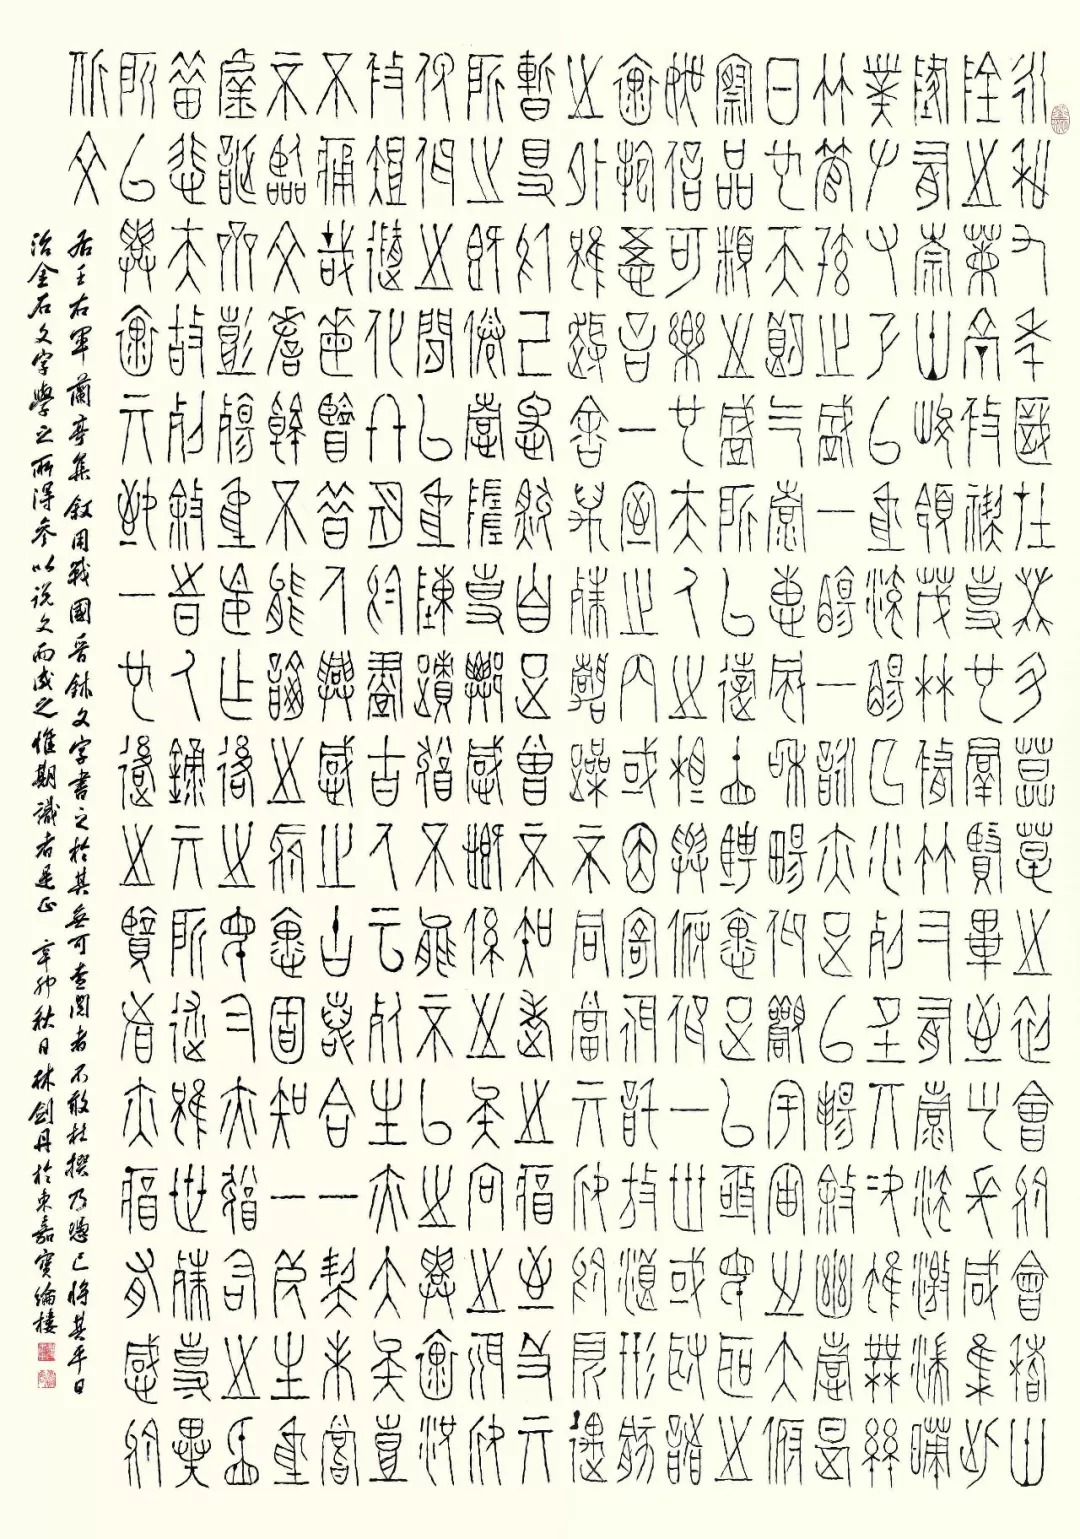 永和九年歲在癸丑暮春之初會于會稽山
陰之蘭亭脩禊事也群賢畢至少長咸集此
地有崇山峻領茂林脩竹又有清流激湍暎
帶左右引以為流觴曲水列坐其次雖無絲
竹管弦之盛一觴一詠亦足以暢敘幽情是
日也天朗氣清惠風和暢仰觀宇宙之大俯
察品類之盛所以遊目騁懷足以極視聽之
娛信可樂也夫人之相與俯仰一世或取諸
懷抱悟言一室之內或因寄所託放浪形骸
之外雖趣舍萬殊靜躁不同當其欣於所遇
暫得於己快然自足曾不知老之將至及其
所之既惓情隨事遷感慨係之矣向之所欣
俛仰之間以為陳跡猶不能不以之興懷況
脩短隨化終期於盡古人云死生亦大矣豈
不痛哉每攬昔人興感之由若合一契未嘗
不臨文嗟悼不能喻之於懷固知一死生為
虛誕齊彭殤為妄作後之視今亦由今之視
昔悲夫故列敘時人錄其所述雖世殊事異
所以興懷其致一也後之攬者亦將有感於
斯文
右王右軍蘭亭集叙用戰國晉鉢文字書之於其無可查閱者不敢杜撰乃憑已將其平日
治金石文字學之所得參以說文而成之惟期識者是正 辛卯秋日林劍丹於東嘉寶綸樓